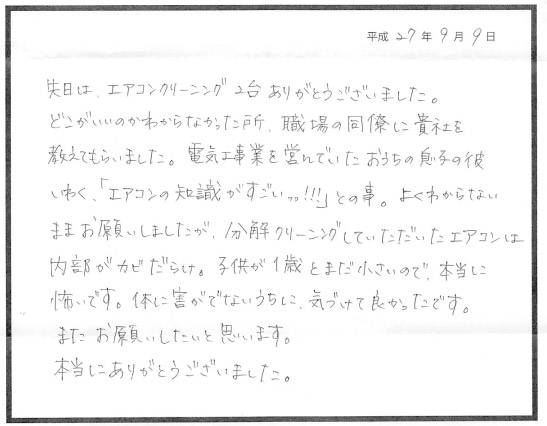 平成27年9月9日
先日は、エアコンクリーニング2台ありがとうございました。
どこがいいのかわからなかった所、職場の同僚に貴社を
教えてもらいました。電気工事業を営んでいたおうちの息子の彼
いわく、「エアコンの知識がすごいッッ!!!」との事。よくわからない
ままお願いしましたが、分解クリーニングしていただいたエアコンは
内部がカビだらけ。子供が1歳とまだ小さいので、本当に
怖いです。体に害がでないうちに、気づけて良かったです。
またお願いしたいと思います。
本当にありがとうございました。